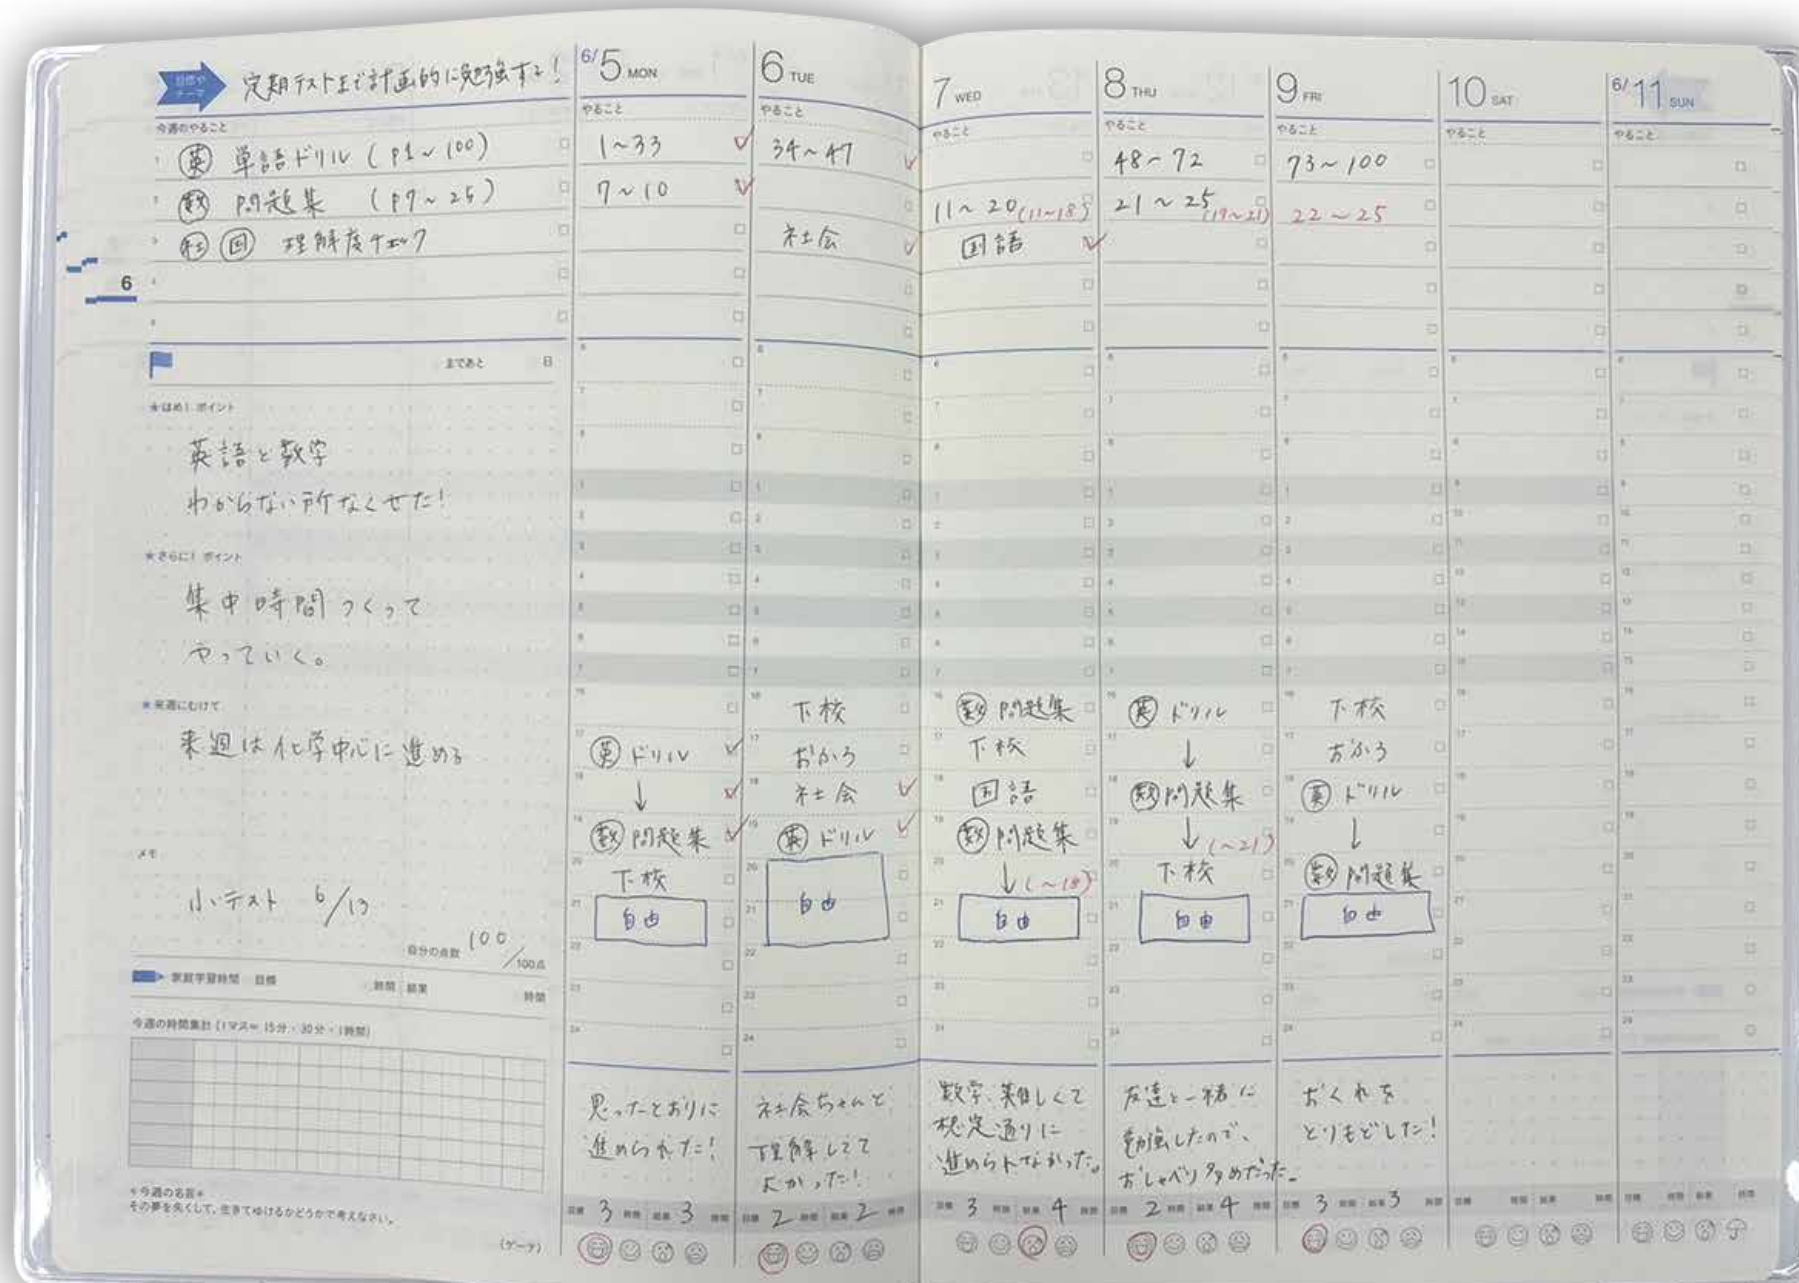 目標や
テーマ
定期テストまで計画的に勉強する！
今週のやること
1 英 単語ドリル（P1～100）
2 数 問題集（P7～25）
3 社 国 理解度チェック
4
5
6
まであと 日
★ほめ！ポイント
英語と数学
わからない所なくせた！
★さらに！ポイント
集中時間つくって
やっていく。
★来週にむけて
来週は化学中心に進める
メモ
小テスト 6/13
自分の点数 100/100点
家庭学習時間 目標 時間 結果 時間
今週の時間集計（1マス＝ 15分・30分・1時間）
＊今週の名言＊
その夢を失くして、生きてゆけるかどうかで考えなさい。
（ゲーテ）
6/5 MON
やること
1～33
7～10
英 ドリル
↓
数 問題集
下校
自由
思ったとおりに
進められた！
目標 3 時間 結果 3 時間
6 TUE
やること
34～47
社会
下校
おふろ
社会
英 ドリル
自由
社会ちゃんと
理解してて
よかった！
目標 2 時間 結果 2 時間
7 WED
やること
11～20(11～18)
国語
数 問題集
下校
国語
数 問題集
↓(～18)
自由
数学、難しくて
想定通りに
進められなかった。
目標 3 時間 結果 4 時間
8 THU
やること
48～72
21～25(19～21)
英 ドリル
↓
数 問題集
↓(～21)
下校
自由
友達と一緒に
勉強したので、
おしゃべり多めだった。
目標 2 時間 結果 4 時間
9 FRI
やること
73～100
22～25
下校
おふろ
英 ドリル
↓
数 問題集
自由
おくれを
とりもどした！
目標 3 時間 結果 3 時間
10 SAT
やること
目標 時間 結果 時間
6/11 SUN
やること
目標 時間 結果 時間